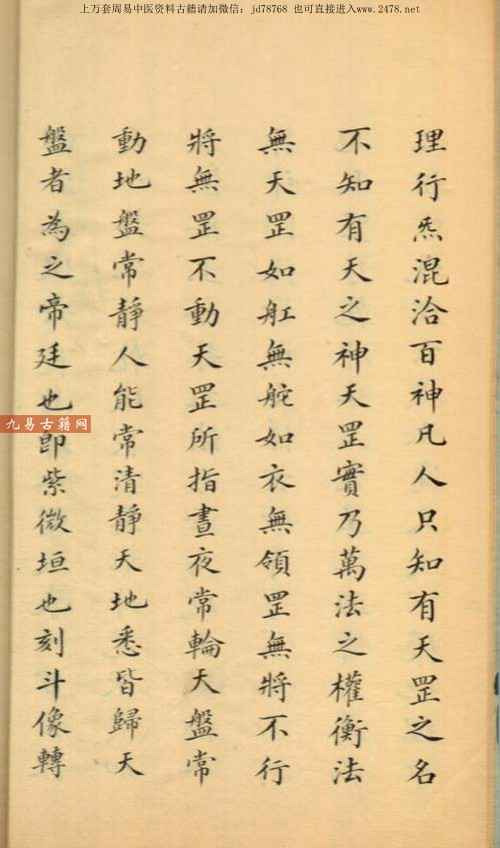 上万套周易中医资料古籍请加微信：jd78768 也可直接进入www.2478.net
理行炁混洽百神凡人只知有天罡之名
不知有天之神天罡實乃萬法之權衡法
無天罡如舡無舵如衣無領罡無將不行
將無罡不動天罡所指晝夜常輪天盤常
動地盤常靜人能常清靜天地悉皆歸天
盤者為之帝廷也即紫微垣也刻斗像轉
九易古籍网